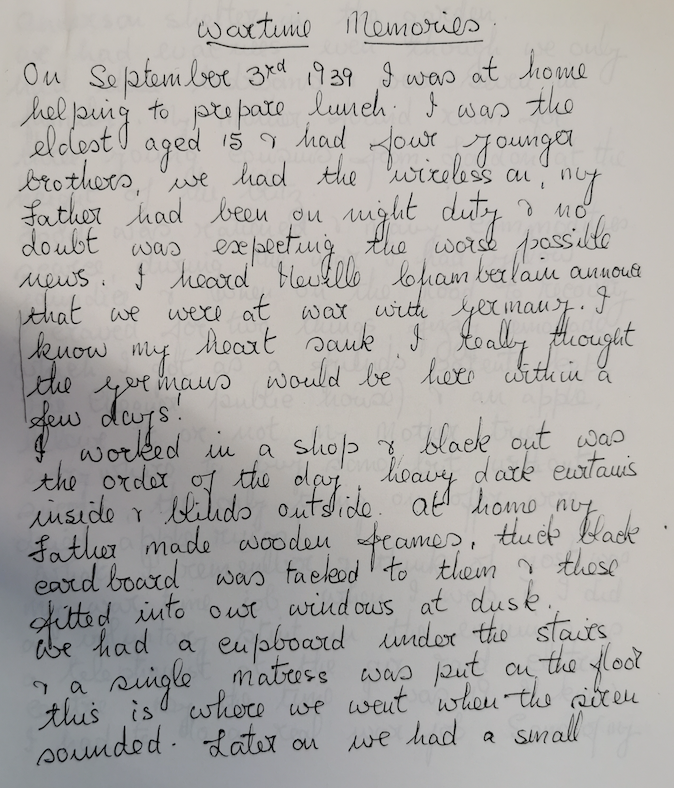 Wartime Memories.
On September 3rd 1939 I was at home
helping to prepare lunch. I was the
eldest aged 15 & had four younger
brothers, we had the wireless on, my
Father had been on night duty & no
doubt was expecting the worse possible
news. I heard Neville Chamberlain announce
that we were at war with Germany. I
know my heart sank. I really thought
the Germans would be here within a
few days!
I worked in a shop & black out was
the order of the day, heavy dark curtains
inside & blinds outside. At home my
Father made wooden frames, thick black
cardboard was tacked to them & these
fitted into our windows at dusk.
We had a cupboard under the stairs
& a single matress was put on the floor
this is where we went when the siren
sounded. Later on we had a small